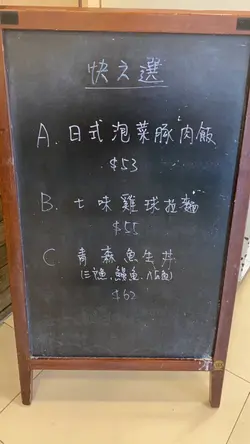 快之選
A. 日式泡菜豚肉飯
$53
B. 七味雞球拉麵
$55
C 青森魚生丼
(三文魚、鰻魚、八爪魚)
$62